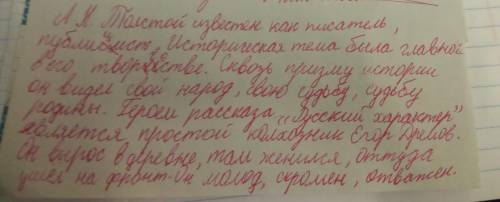 А. Н. Толстой известен как писатель,
публицист. Историческая тема была главной
в его творчестве. Сквозь призму истории
он видел свой народ, свою судьбу, судьбу
родины. Героем рассказа „Русский характер"
является простой колхозник Егор Дрёмов.
Он вырос в деревне, там женился, оттуда
ушел на фронт. Он молод, скромен, отважен.